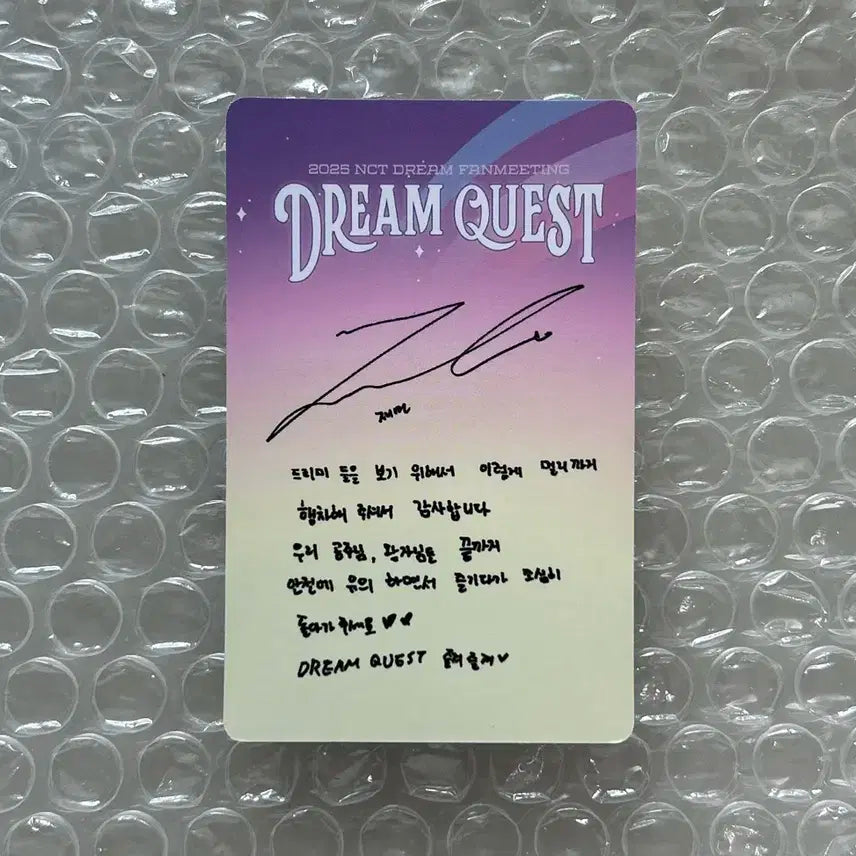 2025 NCT DREAM FANMEETING
DREAM QUEST
재민
드리미 들을 보기 위해서 이렇게 멀리까지
행차해 주셔서 감사합니다
우리 공주님, 왕자님들 끝까지
안전에 유의 하면서 즐기다가 조심히
돌아가 주세요 ♥♥
DREAM QUEST 즐겨♥